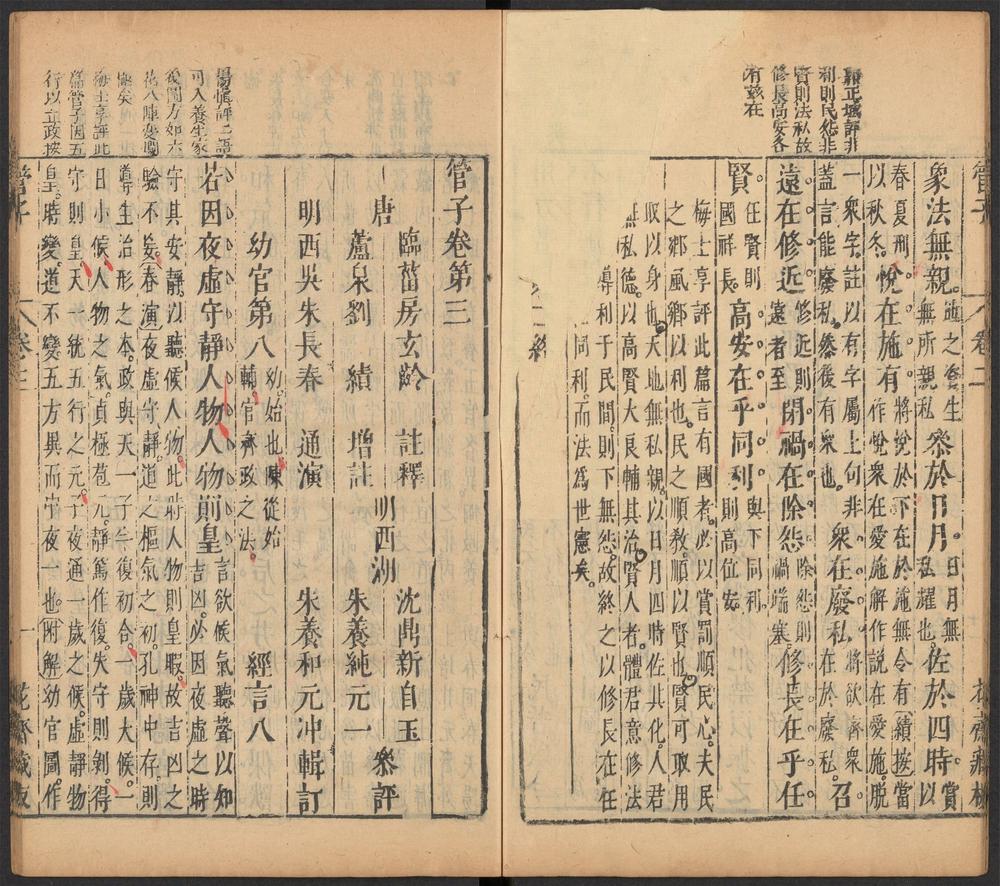 管子
卷二
花齋藏板
郭正域評非
利則民怨非
賢則法私故
修長高安各
象法無親。地之資生無所親私參於日月。日月無私耀也佐於四時。賞以
春夏刑以秋冬。悅在施有。將悅於下在於施無令有續按當作悅衆在愛施解作說在愛施脫
一衆字註以有字屬上句非蓋言能廢私然後有衆也。衆在廢私。將欲齊衆在於廢私。召
遠在修近。修近則遠者至閉禍在除怨。除怨則禍端塞。修長在乎任
賢。任賢則國祚長。高安在乎同利。與下同利。則高位安。
梅士享評此篇言有國者。必以賞罰順民心。夫民
之鄉風鄉以利也。民之順教。順以賢也。賢可取用
取以身也。天地無私親。以日月四時佐其化。人君
無私德。以高賢大良輔其治。賢人者。體君意修法
導利于民間。則下無怨。故終之以修長在任
同利。而法爲世憲矣。
二終
管子卷第三
唐 臨菑房玄齡 註釋
蘆泉劉 績 增註
明西吳朱長春 通演
明西湖 沈鼎新自玉
朱養純元一 參評
朱養和元冲輯訂
幼官第八 幼。始也。陳從始輔官齊政之法。 經言八
若因夜虛守靜人物人物則皇 言欲候氣聽聲以知吉凶。必因夜虛之時
守其安靜。以聽候人人物。此時人物則皇暇。故吉凶之
驗不妄。春演夜虛守靜。道之樞氣之初。孔神中存。則
尊生治形之本。政與天一子宗復初合。一歲大候。一
日小候。人物之氣。貞極苞元。靜篤作復。失守則剝。得
守則皇。天一統五行之元。子夜通一歲之候。虛靜物
皇。時變。道不變。五方異而守夜一也。附解幼官圖。作
楊慎評二語
可入養生家
後圖方如六
花八陣變闔
極矣
梅士享評此
篇管子因五
行以立政按
管子
卷三
一
花齋藏板